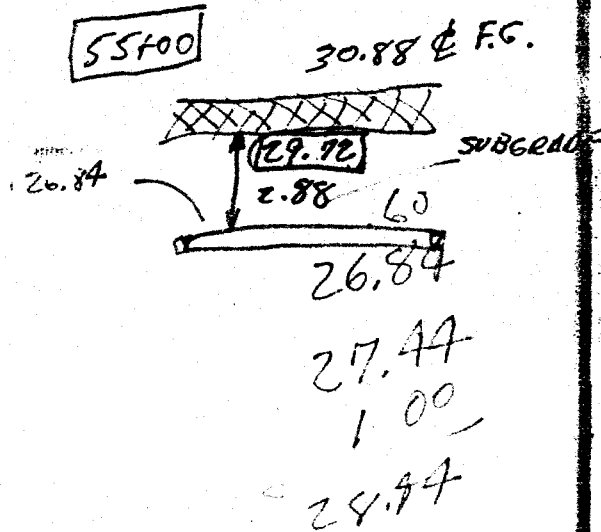 55+00
30.88 ℄ F.G.
29.72
SUBGRADE
26.84
2.88
60
26.84
27.44
1 00
28.44